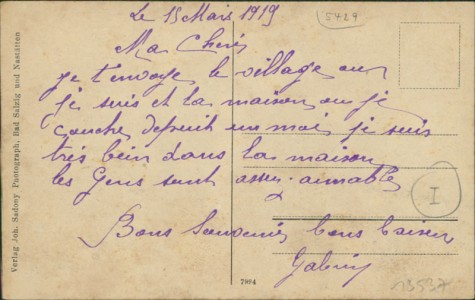 Le 15 Mars 1919
5429
Ma Cheri
je t'envoye le village ou
je suis et la maison ou je
couche depuit un moi je suis
très bein dans la maison
les Gens sont assez aimable
I
Bons Souvenir bons baiser
Verlag Joh. Sadony Photograph, Bad Salzig und Nastätten
7994
13537